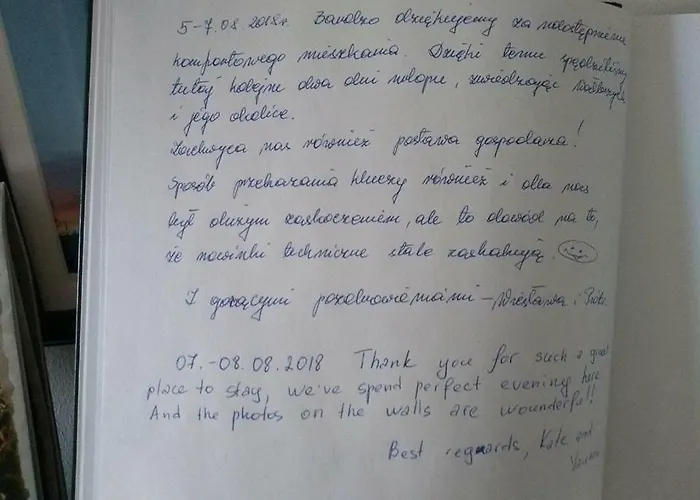 5-7.08.2018r. Bardzo dziękujemy za udostępnienie
komfortowego mieszkania. Dzięki temu spędziliśmy
tutaj kolejne dwa dni urlopu, zwiedzając
i jego okolice.
Zachwyca nas również postawa gospodarza!
Sposób przekazania kluczy również i dla nas
był dużym zaskoczeniem, ale to dowód na to,
że nowinki techniczne stale zaskakują.
Z gorącymi pozdrowieniami - Wiesława i Piotr.
07.-08.08.2018 Thank you for such a good
place to stay, we've spend perfect evening here
And the photos on the walls are wounderful!!
Best reguards, Kate and